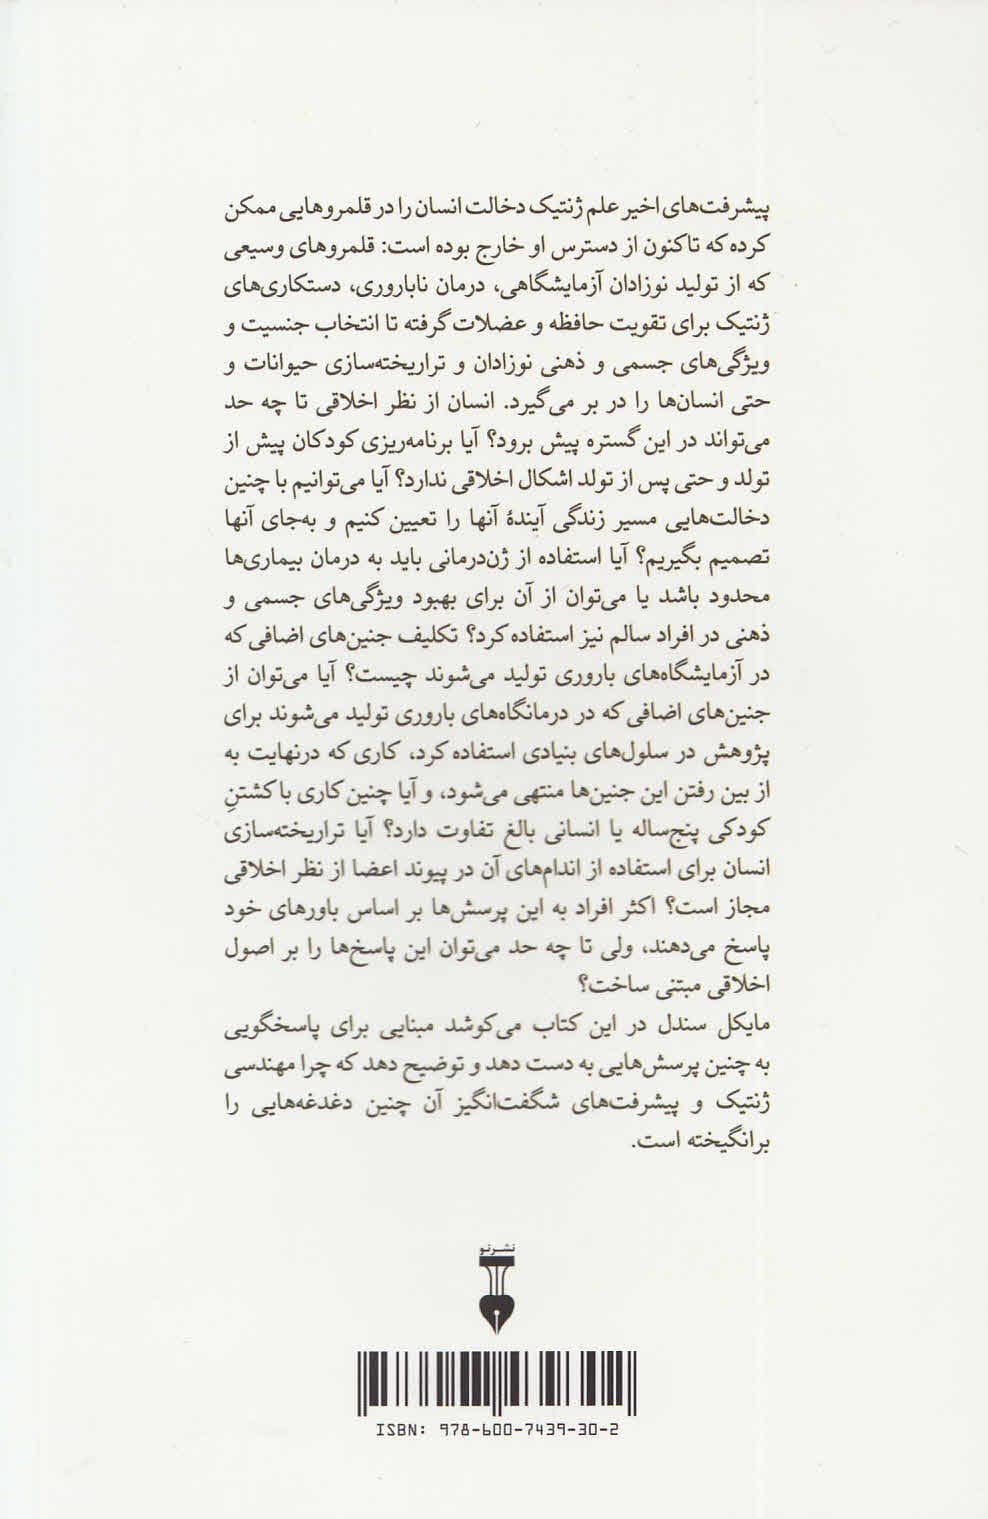 پیشرفت‌های اخیر علم ژنتیک دخالت انسان را در قلمروهایی ممکن
کرده که تاکنون از دسترس او خارج بوده است: قلمروهای وسیعی
که از تولید نوزادان آزمایشگاهی، درمان ناباروری، دستکاری‌های
ژنتیک برای تقویت حافظه و عضلات گرفته تا انتخاب جنسیت و
ویژگی‌های جسمی و ذهنی نوزادان و تراریخته‌سازی حیوانات و
حتی انسان‌ها را در بر می‌گیرد. انسان از نظر اخلاقی تا چه حد
می‌تواند در این گستره پیش برود؟ آیا برنامه‌ریزی کودکان پیش از
تولد و حتی پس از تولد اشکال اخلاقی ندارد؟ آیا می‌توانیم با چنین
دخالت‌هایی مسیر زندگی آیندهٔ آنها را تعیین کنیم و به‌جای آنها
تصمیم بگیریم؟ آیا استفاده از ژن‌درمانی باید به درمان بیماری‌ها
محدود باشد یا می‌توان از آن برای بهبود ویژگی‌های جسمی و
ذهنی در افراد سالم نیز استفاده کرد؟ تکلیف جنین‌های اضافی که
در آزمایشگاه‌های باروری تولید می‌شوند چیست؟ آیا می‌توان از
جنین‌های اضافی که در درمانگاه‌های باروری تولید می‌شوند برای
پژوهش در سلول‌های بنیادی استفاده کرد، کاری که درنهایت به
از بین رفتن این جنین‌ها منتهی می‌شود، و آیا چنین کاری با کشتنِ
کودکی پنج‌ساله یا انسانی بالغ تفاوت دارد؟ آیا تراریخته‌سازی
انسان برای استفاده از اندام‌های آن در پیوند اعضا از نظر اخلاقی
مجاز است؟ اکثر افراد به این پرسش‌ها بر اساس باورهای خود
پاسخ می‌دهند، ولی تا چه حد می‌توان این پاسخ‌ها را بر اصول
اخلاقی مبتنی ساخت؟
مایکل سندل در این کتاب می‌کوشد مبنایی برای پاسخگویی
به چنین پرسش‌هایی به دست دهد و توضیح دهد که چرا مهندسی
ژنتیک و پیشرفت‌های شگفت‌انگیز آن چنین دغدغه‌هایی را
برانگیخته است.
نشرنو
ISBN: 978-600-7439-30-2